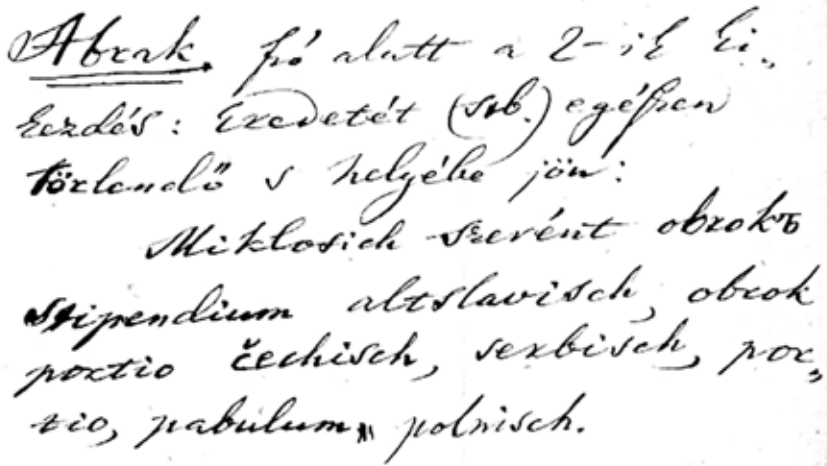 Abrak. szó alatt a 2-ik ki„
kezdés: Eredetét (stb.) egészen
törlendő s helyébe jön:
Miklosich szerént obrokъ
stipendium altslavisch, obrok
portio čechisch, serbisch, por„
tio, pabulum, polnisch.